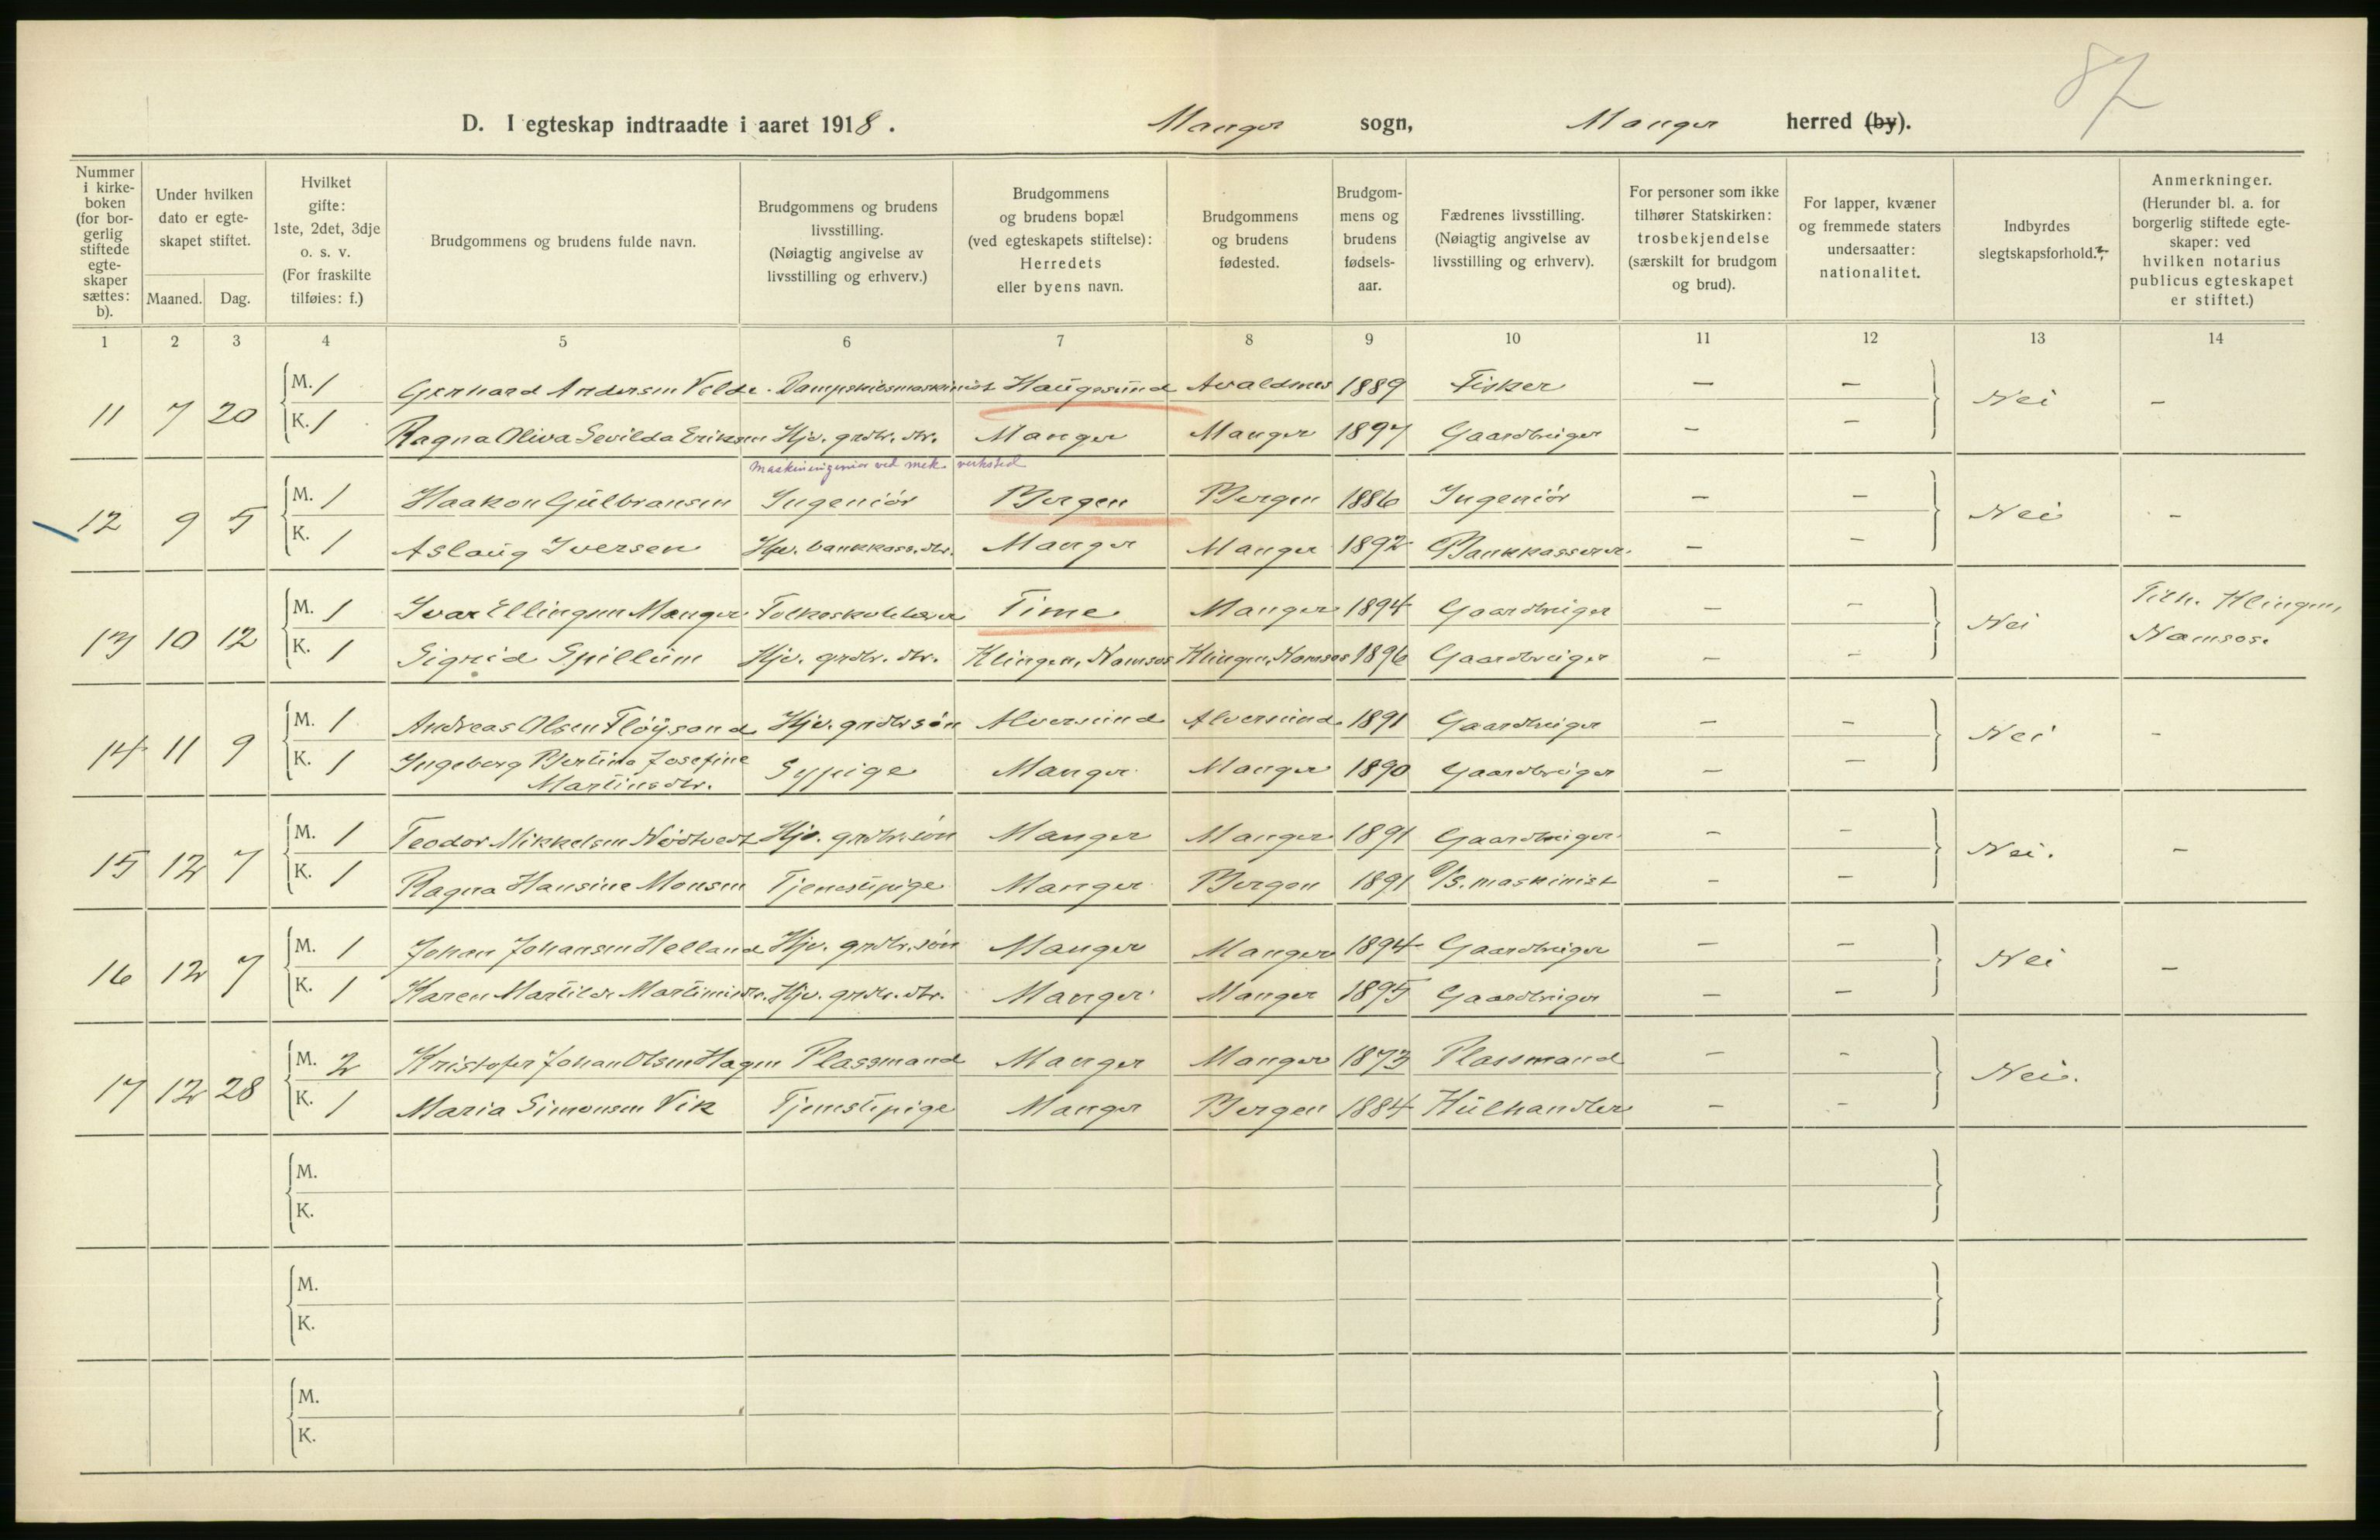 87
D. I egteskap indtraadte i aaret 1918. Manger sogn, Manger herred (by).
Nummer i kirkeboken (for borgerlig stiftede egteskaper sættes: b).
Under hvilken dato er egteskapet stiftet.
Maaned. Dag.
Hvilket gifte: 1ste, 2det, 3dje o. s. v. (For fraskilte tilføies: f.)
Brudgommens og brudens fulde navn.
Brudgommens og brudens livsstilling. (Nøiagtig angivelse av livsstilling og erhverv.)
Brudgommens og brudens bopæl (ved egteskapets stiftelse): Herredets eller byens navn.
Brudgommens og brudens fødested.
Brudgommens og brudens fødselsaar.
Fædrenes livsstilling. (Nøiagtig angivelse av livsstilling og erhverv).
For personer som ikke tilhører Statskirken: trosbekjendelse (særskilt for brudgom og brud).
For lapper, kvæner og fremmede staters undersaatter: nationalitet.
Indbyrdes slegtskapsforhold.
Anmerkninger. (Herunder bl. a. for borgerlig stiftede egteskaper: ved hvilken notarius publicus egteskapet er stiftet.)
1 2 3 4 5 6 7 8 9 10 11 12 13 14
11 7 20 M. 1 Gerhard Andersen Velde Dampskibsmaskinist Haugesund Avaldsnes 1889 Fisker — — Nei —
K. 1 Ragna Oliva Sevilda Eriksen Hjv. grdbr. dtr. Manger Manger 1897 Gaardbruger — —
Maskiningeniør ved mek. verksted
12 9 5 M. 1 Haakon Gulbransen Ingeniör Bergen Bergen 1886 Ingeniör — — Nei —
K. 1 Aslaug Iversen Hjv. bankkass. dtr. Manger Manger 1892 Bankkasserer — —
13 10 12 M. 1 Ivar Ellingsen Manger Folkeskolelærer Time Manger 1894 Gaardbruger — — Nei Tilh. Klingen,
K. 1 Sigrid Spillum Hjv. grdbr. dtr. Klingen, Namsos Klingen, Namsos 1896 Gaardbruger — — Namsos.
14 11 9 M. 1 Andreas Olsen Flöysand Hjv. grdbr søn Alversund Alversund 1891 Gaardbruger — — Nei —
K. 1 Ingeborg Bertina Josefine Martinsdtr. Sypige Manger Manger 1890 Gaardbruger — —
15 12 7 M. 1 Teodor Mikkelsen Nödtvedt Hjv. grdbr. søn Manger Manger 1891 Gaardbruger — — Nei. —
K. 1 Ragna Hansine Monsen Tjenestepige Manger Bergen 1891 D/S. maskinist — —
16 12 7 M. 1 Johan Johansen Helland Hjv. grdbr. søn Manger Manger 1894 Gaardbruger — — Nei —
K. 1 Karen Martilde Martinusdtr. Hjv. grdbr. dtr. Manger Manger 1895 Gaardbruger — —
17 12 28 M. 2 Kristofer Johan Olsen Hagen Plassmand Manger Manger 1873 Plassmand — — Nei.
K. 1 Maria Simonsen Vik Tjenestepige Manger Bergen 1884 Kulhandler — —
M.
K.
M.
K.
M.
K.